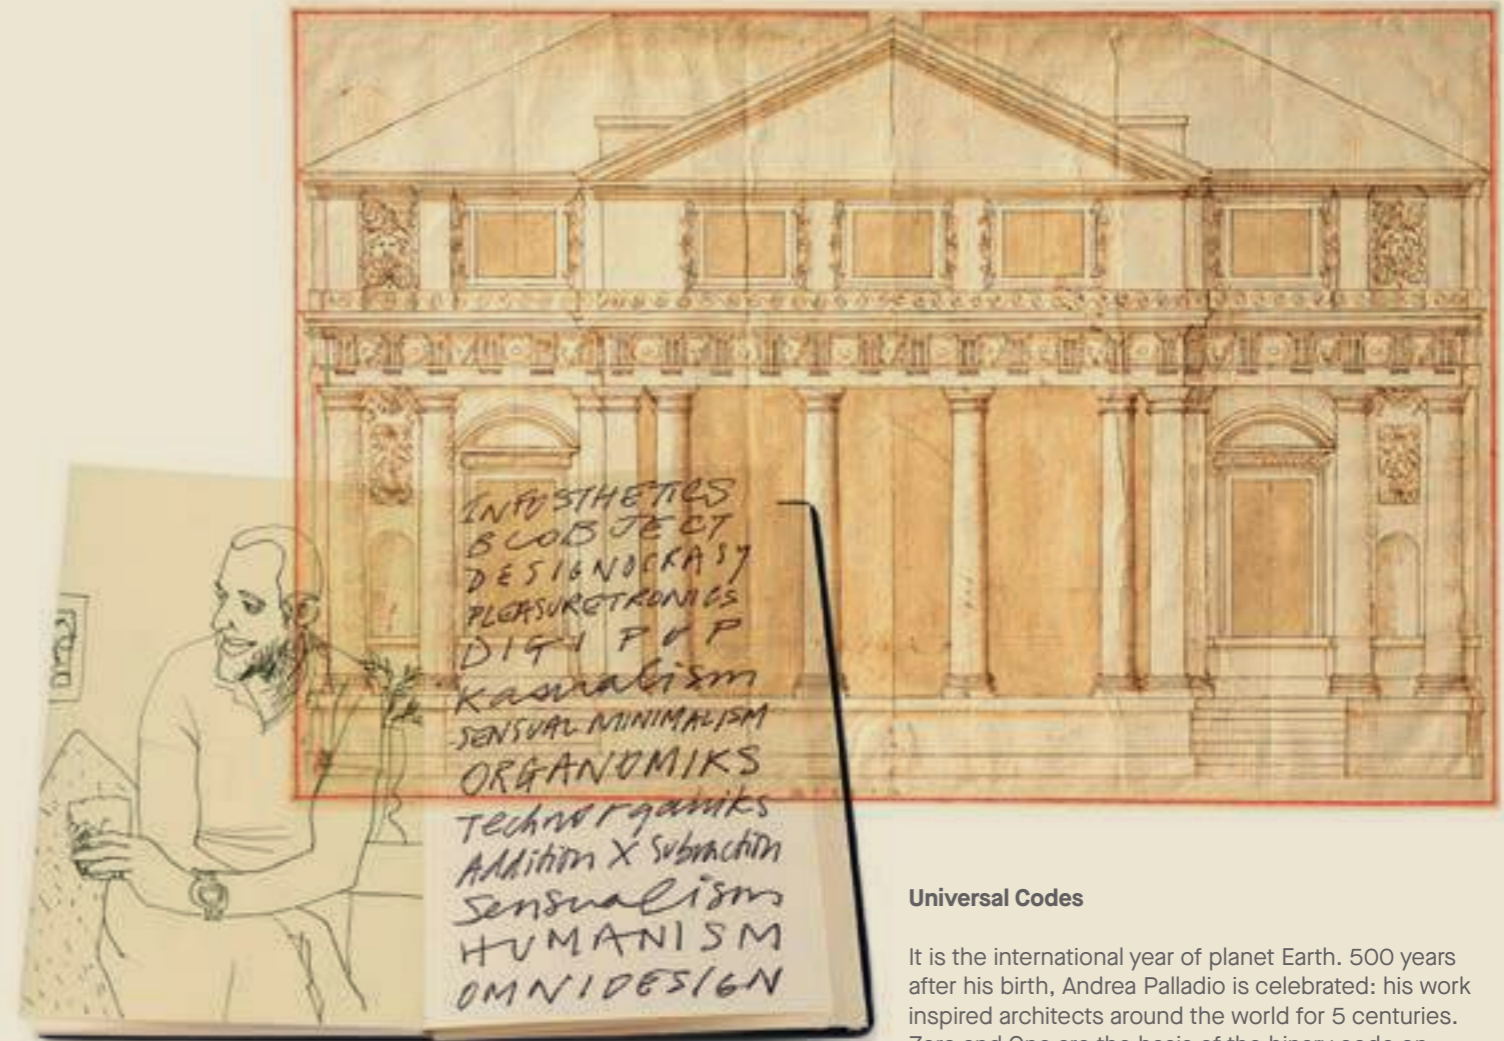 INFOSTHETICS
BLOBJECT
DESIGNOCRASY
PLEASURETRONICS
DIGI POP
Kasualism
SENSUAL MINIMALISM
ORGANOMIKS
Technorganiks
Addition X Subtraction
Sensualism
HUMANISM
OMNIDESIGN
Universal Codes
It is the international year of planet Earth. 500 years
after his birth, Andrea Palladio is celebrated: his work
inspired architects around the world for 5 centuries.
Zero and One are the basis of the binary code on